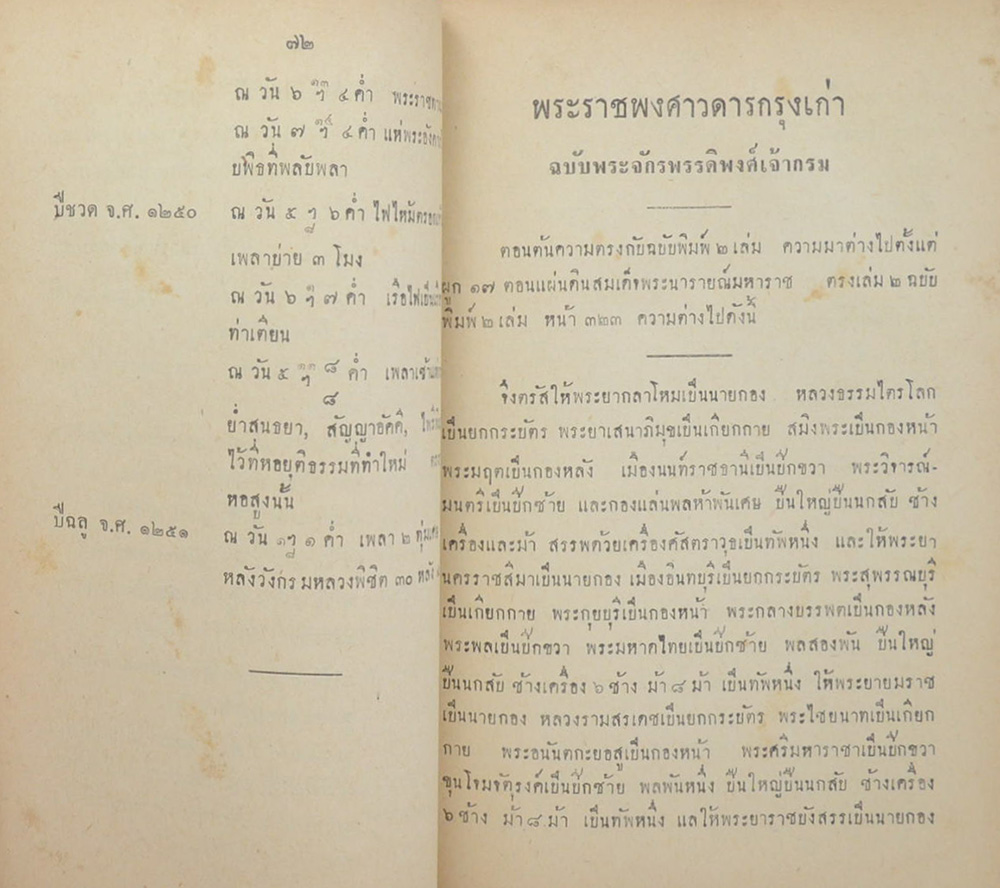 ๗๒
ณ วัน ๖ ๔ ค่ำ
ณ วัน ๗ ๔ ค่ำ แห่พระอังคา
ยพิธที่พลับพลา
ปีชวด จ.ศ. ๑๒๕๐ ณ วัน ๕ ๖ ค่ำ ไฟไหม้
เพลาบ่าย ๓ โมง
ณ วัน ๖ ๗ ค่ำ เรือไฟ
ท่าเตียน
ณ วัน ๕ ๘ ค่ำ เพลาเช้า
๘
ย่ำสนธยา, สัญญาอัคคี,
ไว้ที่หอยุติธรรมที่ทำใหม่
หอสูงนั้น
ปีฉลู จ.ศ. ๑๒๕๑ ณ วัน ๑ ค่ำ เพลา ๒ ทุ่ม
หลังวังกรมหลวงพิชิต ๓๐ หลัง
พระราชพงศาวดารกรุงเก่า
ฉบับพระจักรพรรดิพงศ์เจ้ากรม
ตอนต้นความตรงกับฉบับพิมพ์ ๒ เล่ม ความมาต่างไปตั้งแต่
ผูก ๑๗ ตอนแผ่นดินสมเด็จพระนารายณ์มหาราช ตรงเล่ม ๒ ฉบับ
พิมพ์ ๒ เล่ม หน้า ๓๒๓ ความต่างไปดังนี้
จึงตรัสให้พระยากลาโหมเป็นนายกอง หลวงธรรมไตรโลก
เป็นยกกระบัตร พระยาเสนาภิมุขเป็นเกียกกาย สมิงพระเป็นกองหน้า
พระมฤตเป็นกองหลัง เมืองนนท์ราชธานีเป็นปีกขวา พระวิจารณ์-
มนตรีเป็นปีกซ้าย และกองแล่นพลห้าพันเศษ ปืนใหญ่ปืนนกสับ ช้าง
เครื่องและม้า สรรพด้วยเครื่องศัสตราวุธเป็นทัพหนึ่ง และให้พระยา
นครราชสิมาเป็นนายกอง เมืองอินทบุริเป็นยกกระบัตร พระสุพรรณบุริ
เป็นเกียกกาย พระกุยบุริเป็นกองหน้า พระกลางบรรพตเป็นกองหลัง
พระพลเป็นปีกขวา พระมหาดไทยเป็นปีกซ้าย พลสองพัน ปืนใหญ่
ปืนนกสับ ช้างเครื่อง ๖ ช้าง ม้า ๘ ม้า เป็นทัพหนึ่ง ให้พระยายมราช
เป็นนายกอง หลวงรามสรเดชเป็นยกกระบัตร พระไชยนาทเป็นเกียก
กาย พระอนันตกะยอสูเป็นกองหน้า พระศริมหาราชาเป็นปีกขวา
ขุนโจมจัตุรงค์เป็นปีกซ้าย พลพันหนึ่ง ปืนใหญ่ปืนนกสับ ช้างเครื่อง
๖ ช้าง ม้า ๘ ม้า เป็นทัพหนึ่ง แลให้พระยาราชบังสรรเป็นนายกอง